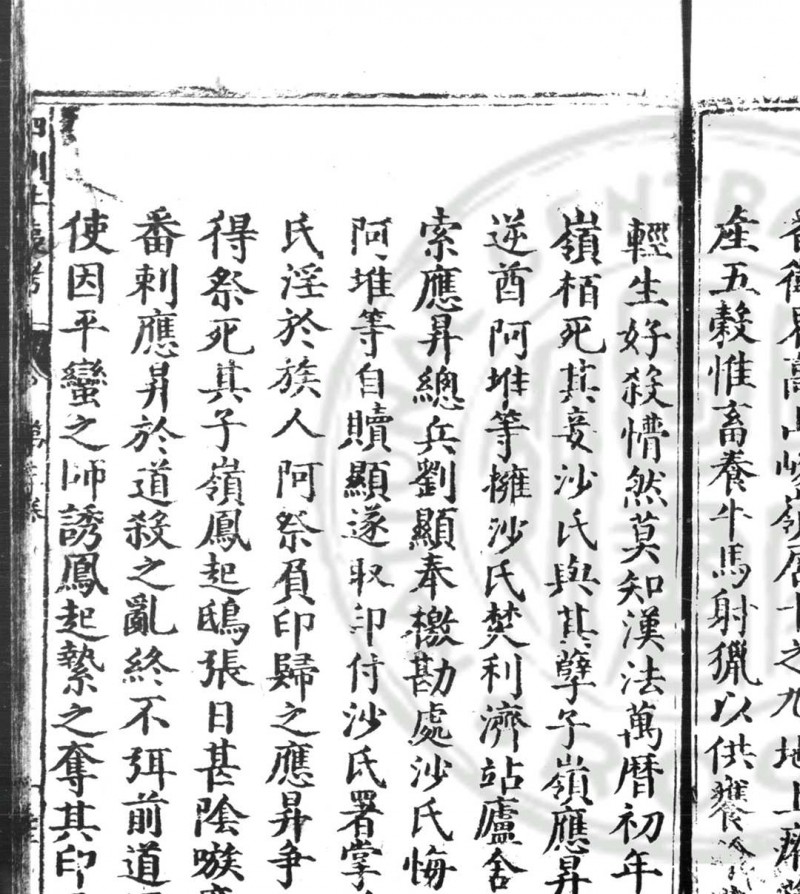 萬山嶺居十之九地土瘠
產五穀惟畜養牛馬射獵以供饔
輕生好殺懵然莫知漢法萬曆初年
嶺栢死其妾沙氏與其孽子嶺應昇
逆酋阿堆等擁沙氏焚利濟站廬舍
索應昇總兵劉顯奉檄勘處沙氏悔
阿堆等自贖顯遂取印付沙氏署掌
氏淫於族人阿祭負印歸之應昇争
得祭死其子嶺鳳起鴟張日甚陰嗾
番刺應昇於道殺之亂終不弭前道
使因平蠻之師誘鳳起縶之奪其印
四川土夷考